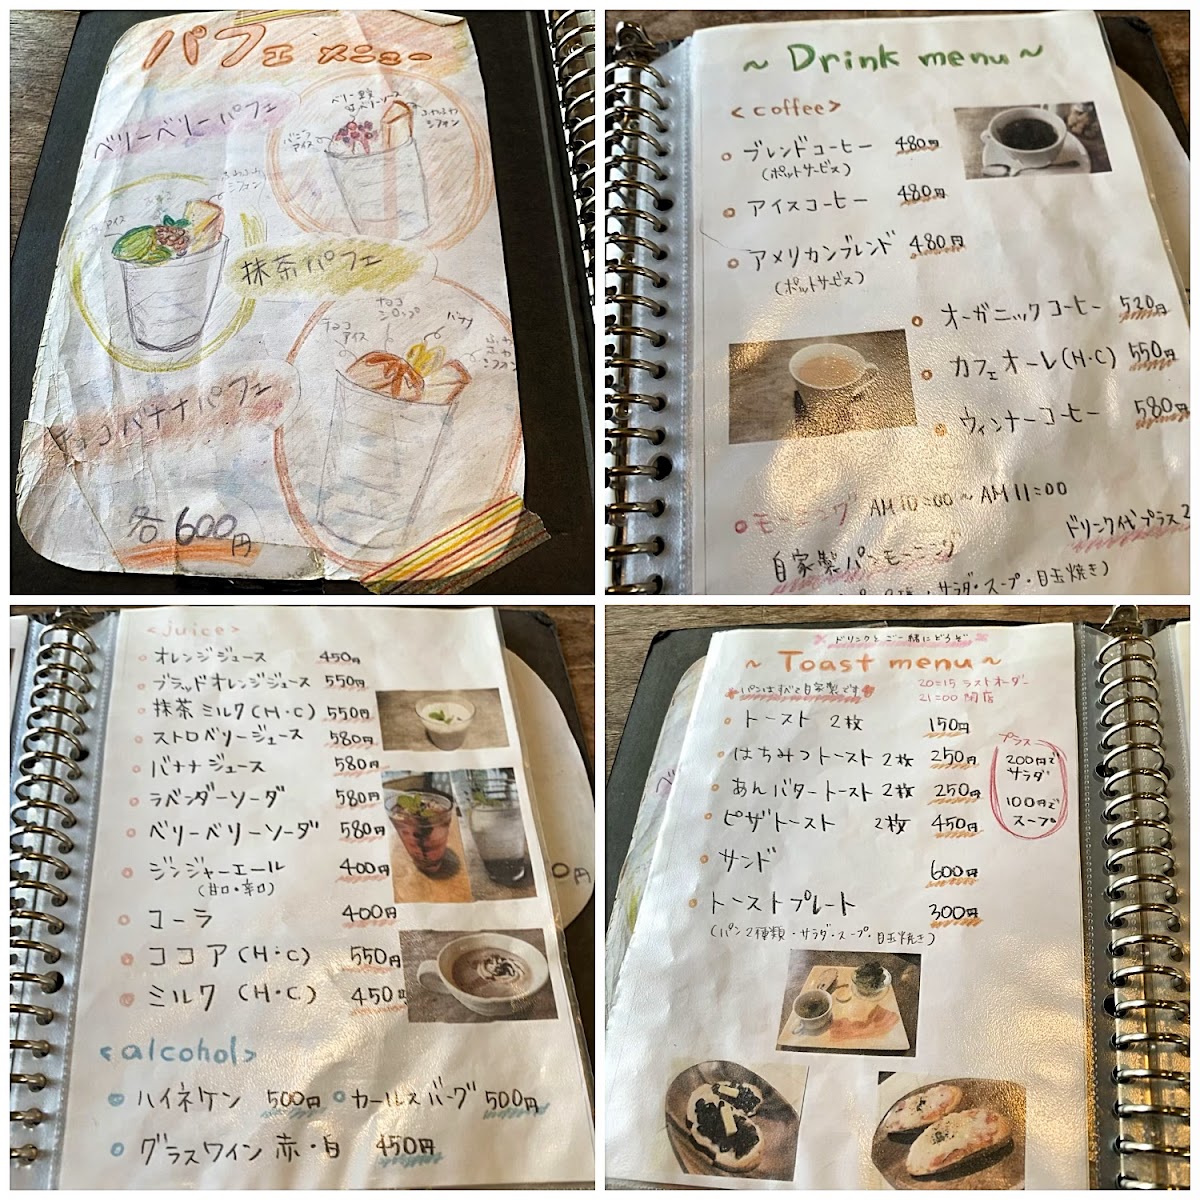 パフェ メニュー
ベリーベリーパフェ
バニラ
アイス
シフォン
アイス
シフォン
抹茶パフェ
チョコ
シロップ
チョコ
アイス
バナナ
シフォン
チョコバナナパフェ
各600円
~ Drink menu ~
<coffee>
ブレンドコーヒー 480円
(ポットサービス)
アイスコーヒー 480円
アメリカンブレンド 480円
(ポットサービス)
オーガニックコーヒー 520円
カフェオーレ(H・C) 550円
ウィンナーコーヒー 580円
モーニング AM10:00~AM11:00
ドリンク代プラス2
自家製パンモーニング
・サラダ・スープ・目玉焼き)
<juice>
オレンジジュース 450円
ブラッドオレンジジュース 550円
抹茶ミルク(H・C) 550円
ストロベリージュース 580円
バナナジュース 580円
ラベンダーソーダ 580円
ベリーベリーソーダ 580円
ジンジャーエール 400円
(甘口・辛口)
コーラ 400円
ココア(H・C) 550円
ミルク(H・C) 450円
0円
<alcohol>
ハイネケン 500円 カールスバーグ 500円
グラスワイン 赤・白 450円
ドリンクとご一緒にどうぞ
~ Toast menu ~
パンはすべて自家製です
20:15 ラストオーダー
21:00 閉店
トースト 2枚 150円
はちみつトースト 2枚 250円
あんバタートースト 2枚 250円
ピザトースト 2枚 450円
サンド 600円
トーストプレート 300円
(パン2種類・サラダ・スープ・目玉焼き)
プラス
200円で
サラダ
100円で
スープ